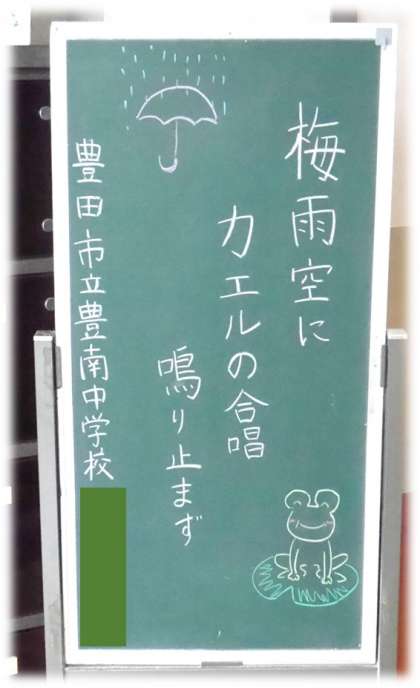 梅雨空に
カエルの合唱
鳴り止まず
豊田市立豊南中学校